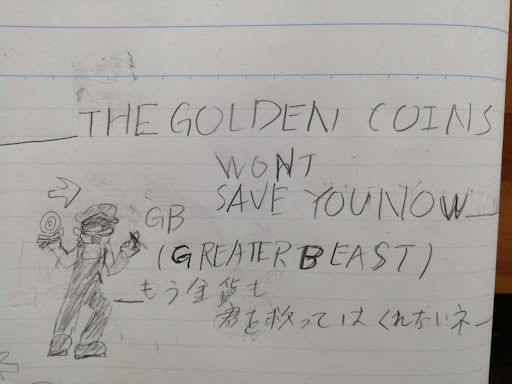 THE GOLDEN COINS
WONT
SAVE YOU NOW
GB
(GREATER BEAST)
もう金貨も
君を救ってはくれないネー